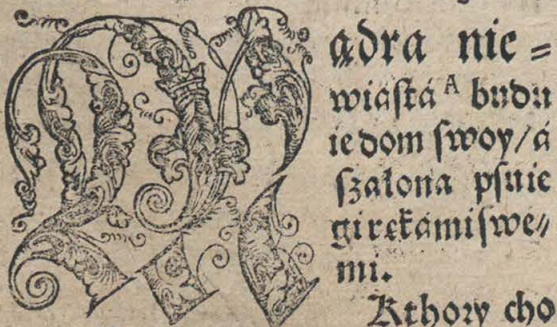 Mądra nie=
wiástá A budu
ie dom swoy/á
szalona psuie
gi rękámi swe/
mi.
Kthory cho